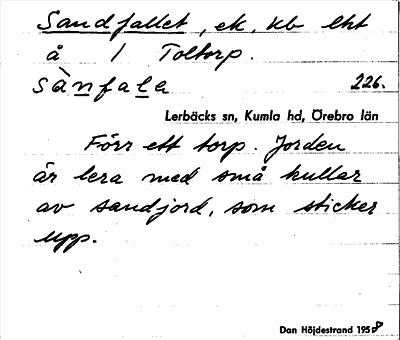 Sandfallet, ek, kb lht
å 1 Toltorp.
sànfala 226.
Lerbäcks sn, Kumla hd, Örebro län
Förr ett torp. Jorden
är lera med små kullar
av sandjord, som sticker
upp.
Dan Höjdestrand 1958